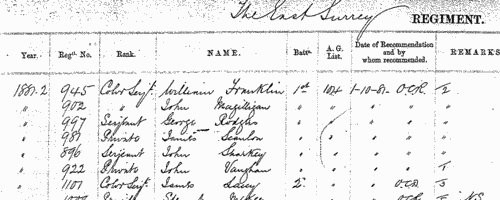 The East Surrey REGIMENT.
Year. Regtl. No. Rank. NAME. Batn. A. G. List. Date of Recommendation and by whom recommended. REMARKS
1881-2 945 Color Serjt. William Franklin 1st 104 1-10-81 O.C.R. 1/2
" 902 " John Magilligan " " " " "
" 997 Serjeant George Rodgers " " " " "
" 987 Private James Scanlon " " " " "
" 896 Serjeant John Sharkey " " " " "
" 922 Private John Vaughan " " " "
" 1101 Color Serjt. James Lacey 2 " " O.C.R.